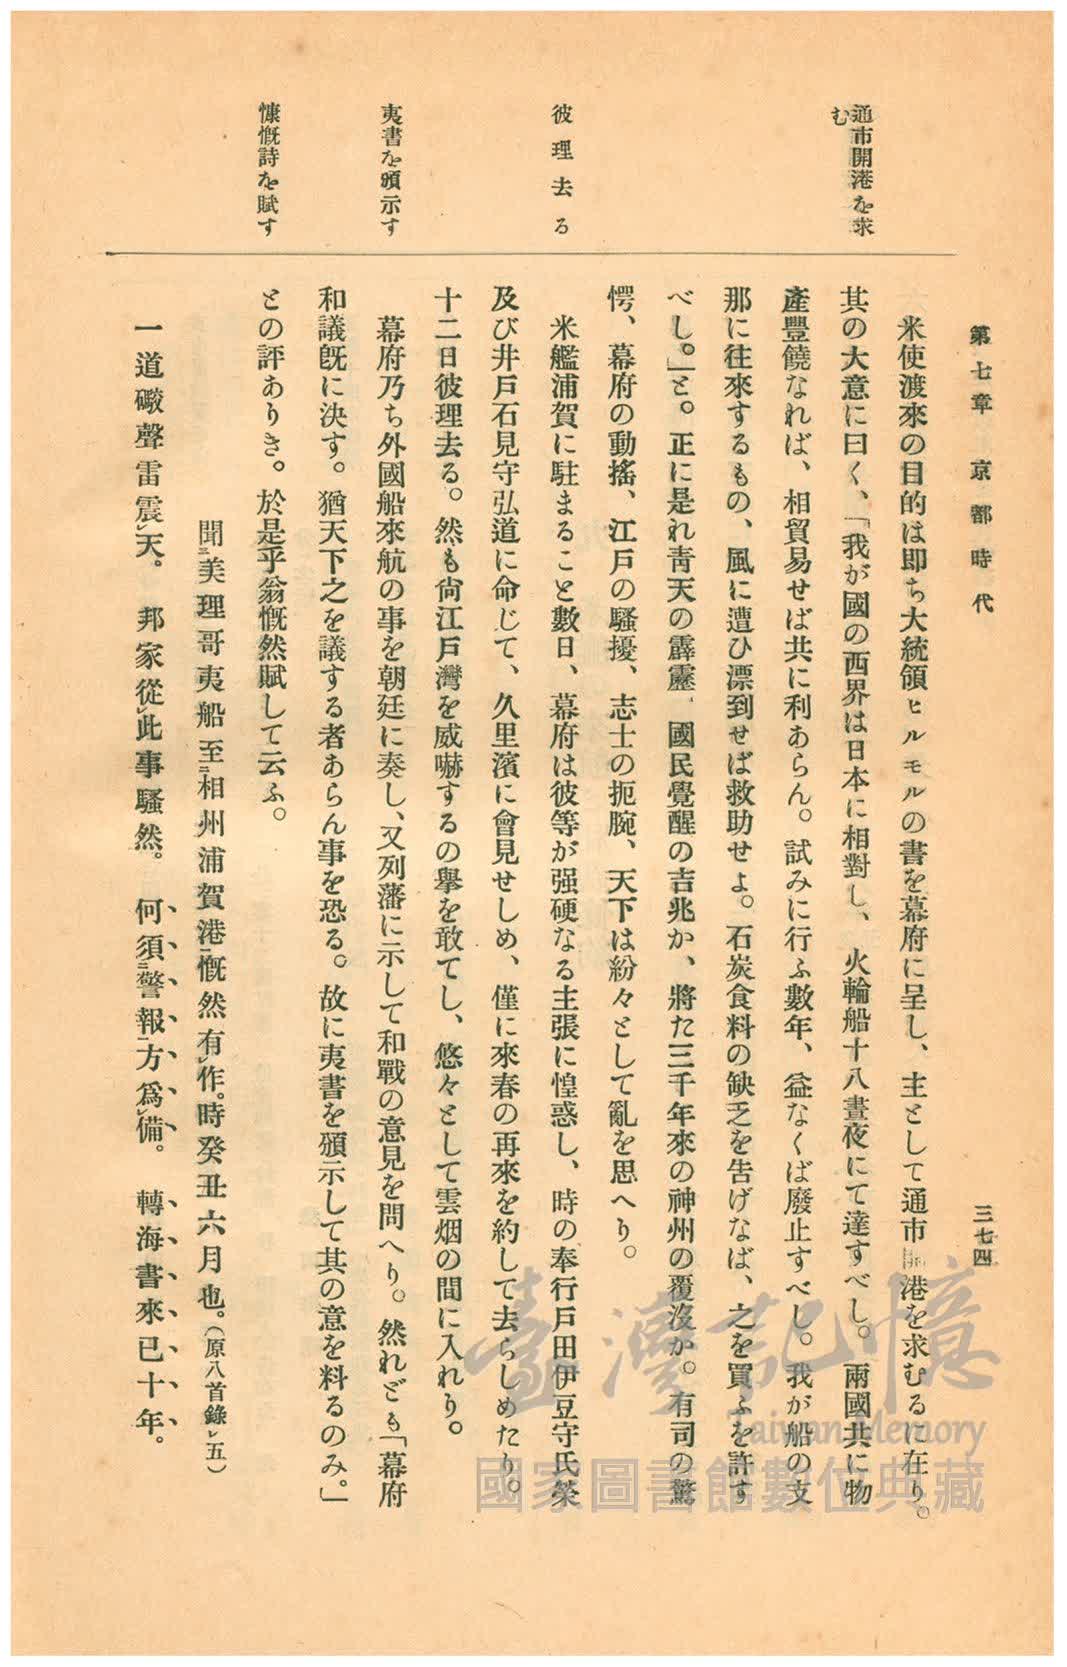 第七章 京都時代
三七四
通市開港を求
む
彼理去る
夷書を頒示す
慷慨詩を賦す
米使渡來の目的は即ち大統領ヒルモルの書を幕府に呈し、主として通市開港を求むるに在り。
其の大意に曰く、「我が國の西界は日本に相對し、火輪船十八晝夜にて達すべし。兩國共に物
產豐饒なれば、相貿易せば共に利あらん。試みに行ふ數年、益なくば廢止すべし。我が船の支
那に往來するもの、風に遭ひ漂到せば救助せよ。石炭食料の缺乏を吿げなば、之を買ふを許す
べし。」と。正に是れ靑天の霹靂、國民覺醒の吉兆か、將た三千年來の神州の覆沒か。有司の驚
愕、幕府の動搖、江戶の騷擾、志士の扼腕、天下は紛々として亂を思へり。
米艦浦賀に駐まること數日、幕府は彼等が强硬なる主張に惶惑し、時の奉行戶田伊豆守氏榮
及び井戶石見守弘道に命じて、久里濱に會見せしめ、僅に來春の再來を約して去らしめたり。
十二日彼理去る。然も尙江戶灣を威嚇するの擧を敢てし、悠々として雲烟の間に入れり。
幕府乃ち外國船來航の事を朝廷に奏し、又列藩に示して和戰の意見を問へり。然れども「幕府
和議旣に決す。猶天下之を議する者あらん事を恐る。故に夷書を頒示して其の意を料るのみ。」
との評ありき。於是乎翁慨然賦して云ふ。
聞二美理哥夷船至二相州浦賀港一慨然有レ作。時癸丑六月也。(原八首錄レ五)
一道礮聲雷震レ天。 邦家從レ此事騷然。 何須二警報一方爲レ備。 轉海書來已十年。
臺灣記憶
Taiwan Memory
國家圖書館數位典藏